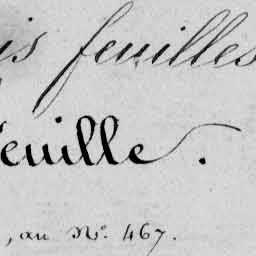 is feuilles
feuille.
, au N° 467.